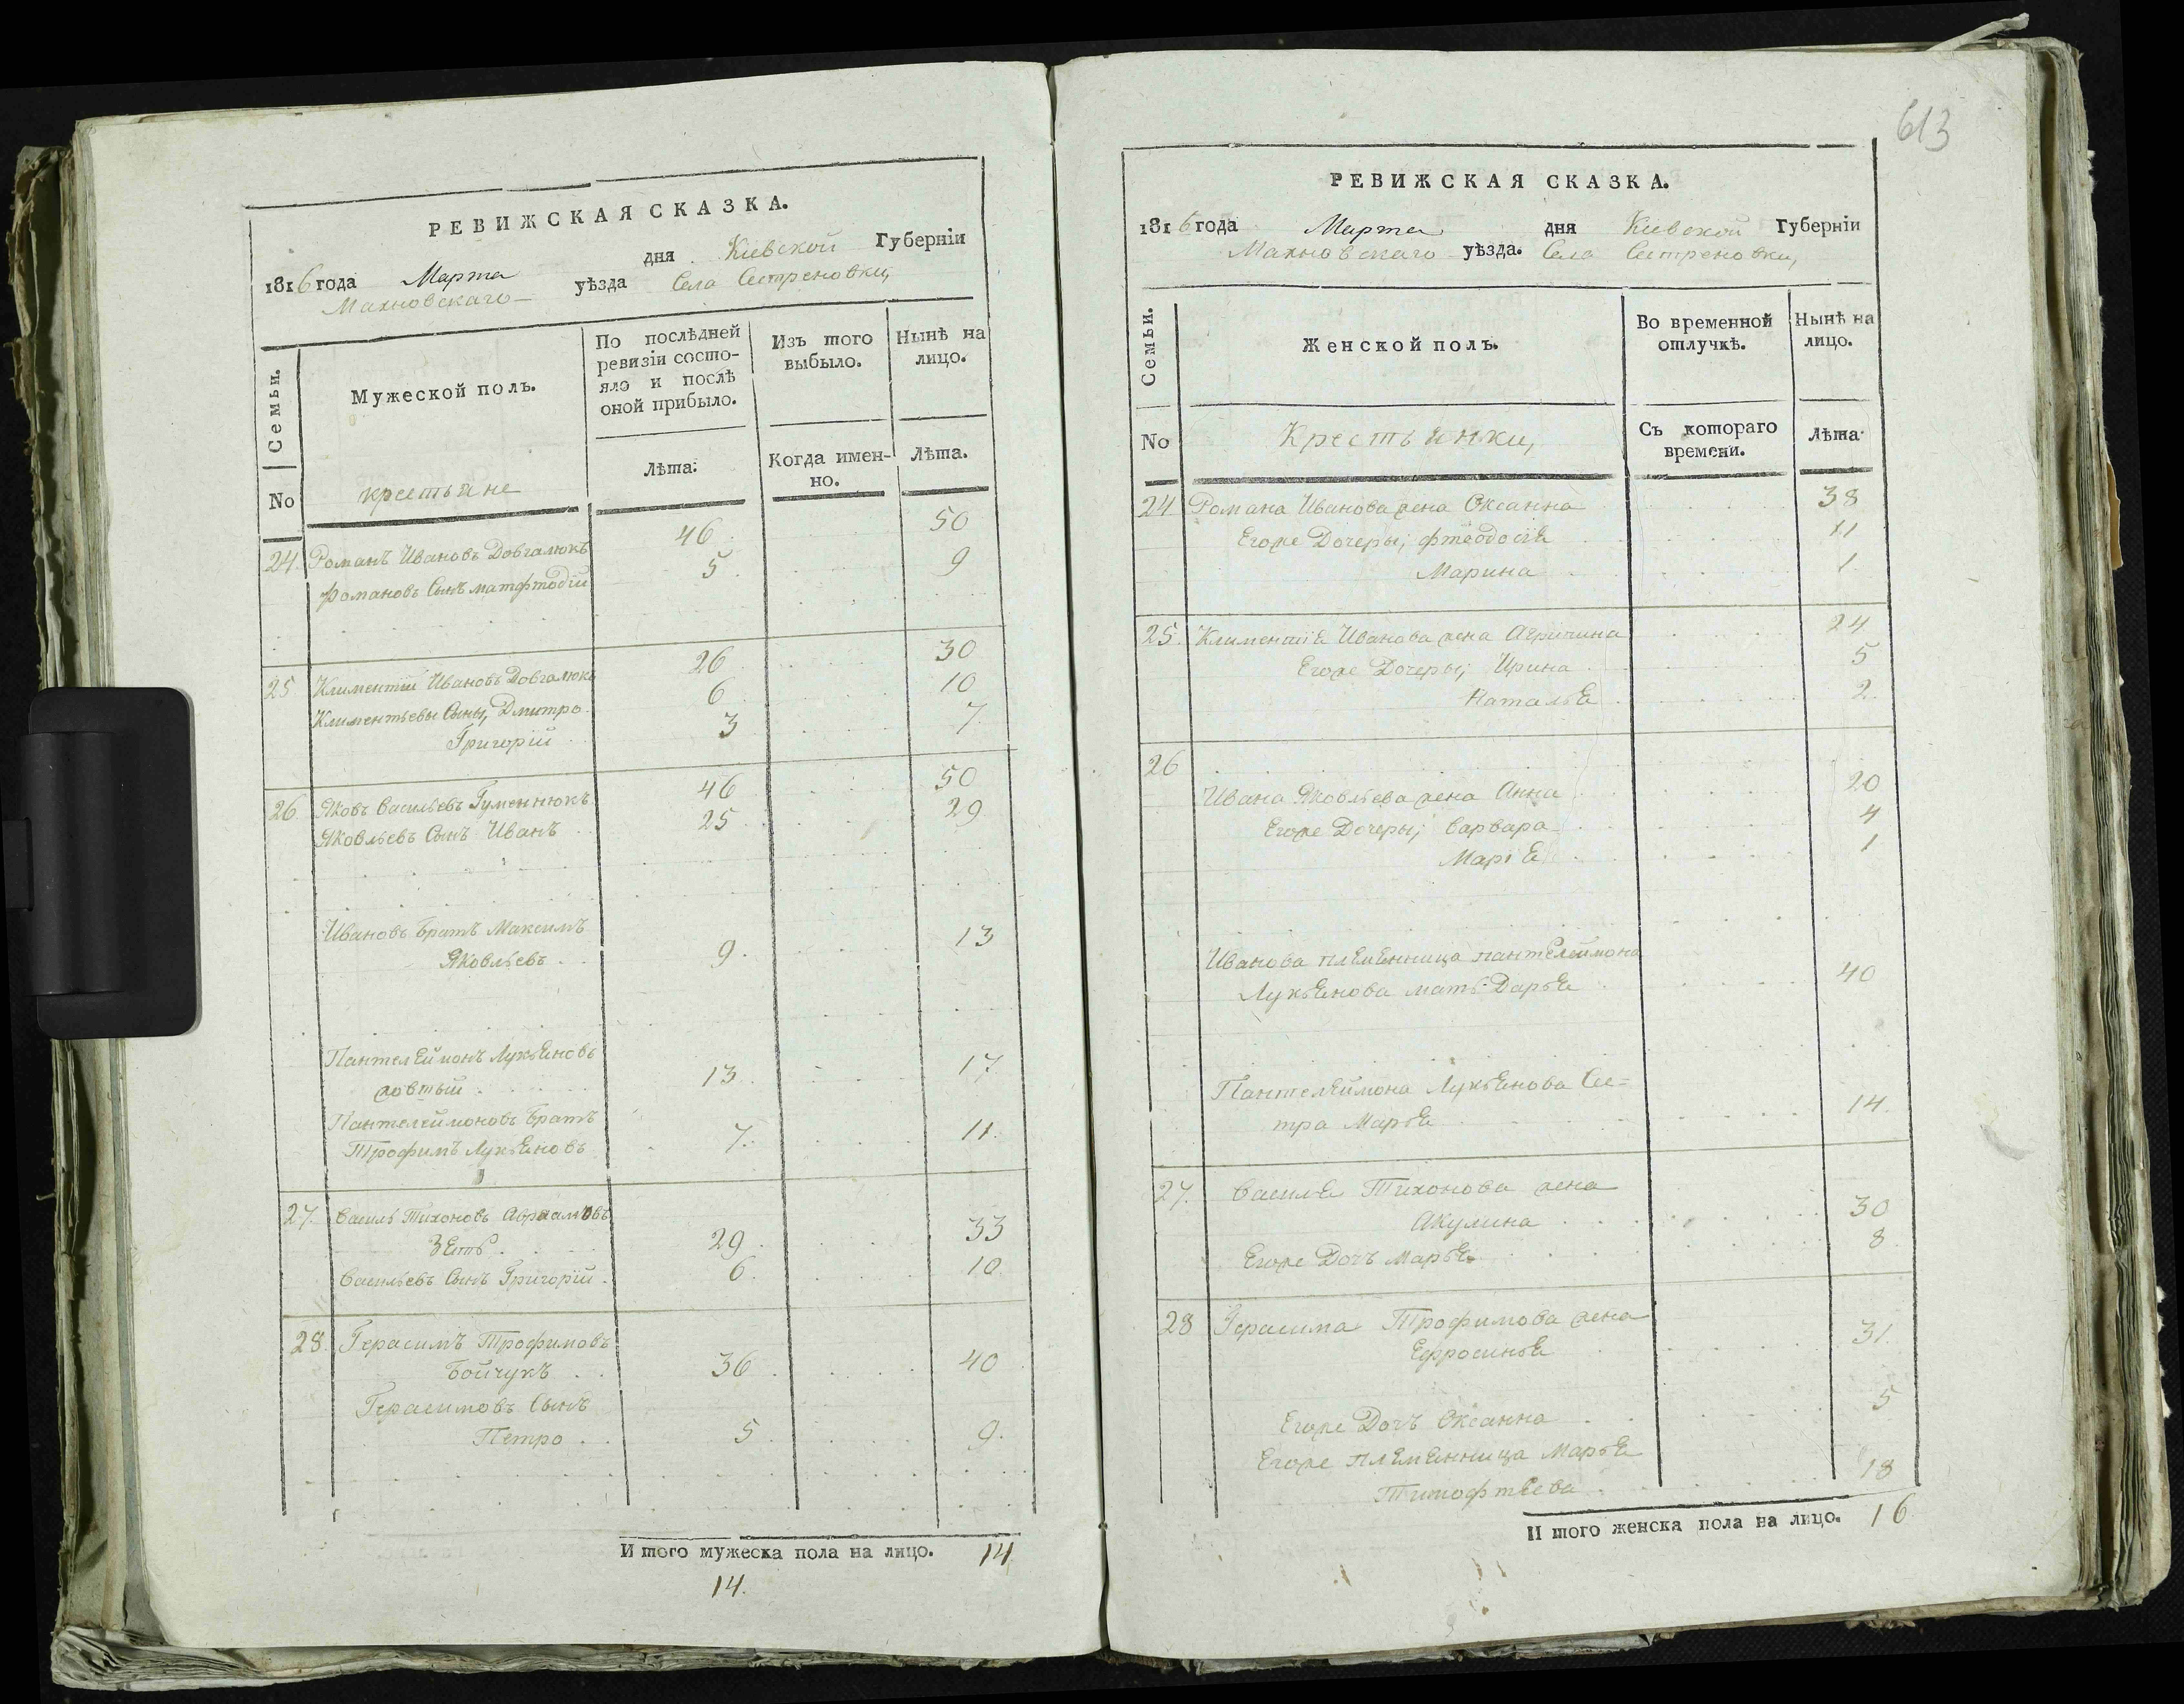 613
РЕВИЖСКАЯ СКАЗКА.
1816 года Марта дня Кіевской Губерніи
Махновскаго уѣзда Села Сестреновки,
Семьи.
Мужеской полъ.
По послѣдней ревизіи состо-
яло и послѣ оной прибыло.
Изъ того выбыло.
Нынѣ на лицо.
No
крестьяне
Лѣта:
Когда имен-
но.
Лѣта.
24. Романъ Ивановъ Довгалюкъ 46 50
Романовъ Сынъ матфтодій 5 9
25. Климентій Ивановъ Довгалюкъ 26 30
Климентьевы Сыны, Дмитро 6 10
Григорій 3 7
26. Яковъ Васильевъ Гуменнюкъ 46 50
Яковльевъ Сынъ Иванъ 25 29
Ивановъ братъ Максимъ
Яковльевъ 9 13
Пантелеймонъ Лукьяновъ
жовтый 13 17
Пантелеймоновъ братъ
Трофимъ Лукьяновъ 7 11
27. Василь Тихоновъ Авраамовъ
Зять 29 33
Васильевъ Сынъ Григорій 6 10
28. Герасимъ Трофимовъ
Бойчукъ 36 40
Герасимовъ Сынъ
Петро 5 9
И того мужеска пола на лицо. 14
14.
РЕВИЖСКАЯ СКАЗКА.
1816 года Марта дня Кіевской Губерніи
Махновскаго уѣзда. Села Сестреновки,
Семьи.
Женской полъ.
Во временной отлучкѣ.
Нынѣ на лицо.
No
Крестьянки,
Съ котораго времени.
Лѣта
24 Романа Иванова жена Оксанна 38
Егоже Дочеры; фтеодосія 11
Марина 1
25. Климентія Иванова жена Агричина 24
Егоже Дочеры; Ирина 5
Наталья 2
26
Ивана Яковльева жена Анна 20
Егоже Дочеры; варвара 4
Марія 1
Иванова племенница пантелеймона
Лукьянова мать Дарья 40
Пантелеймона Лукьянова Сес=
тра Марья 14
27. Василя Тихонова жена
Акулина 30
Егоже Дочъ Марья 8
28 Герасима Трофимова жена
Ефросинья 31
Егоже Дочъ Оксанна 5
Егоже племенница Марья
Тимофтеева 18
И того женска пола на лицо. 16